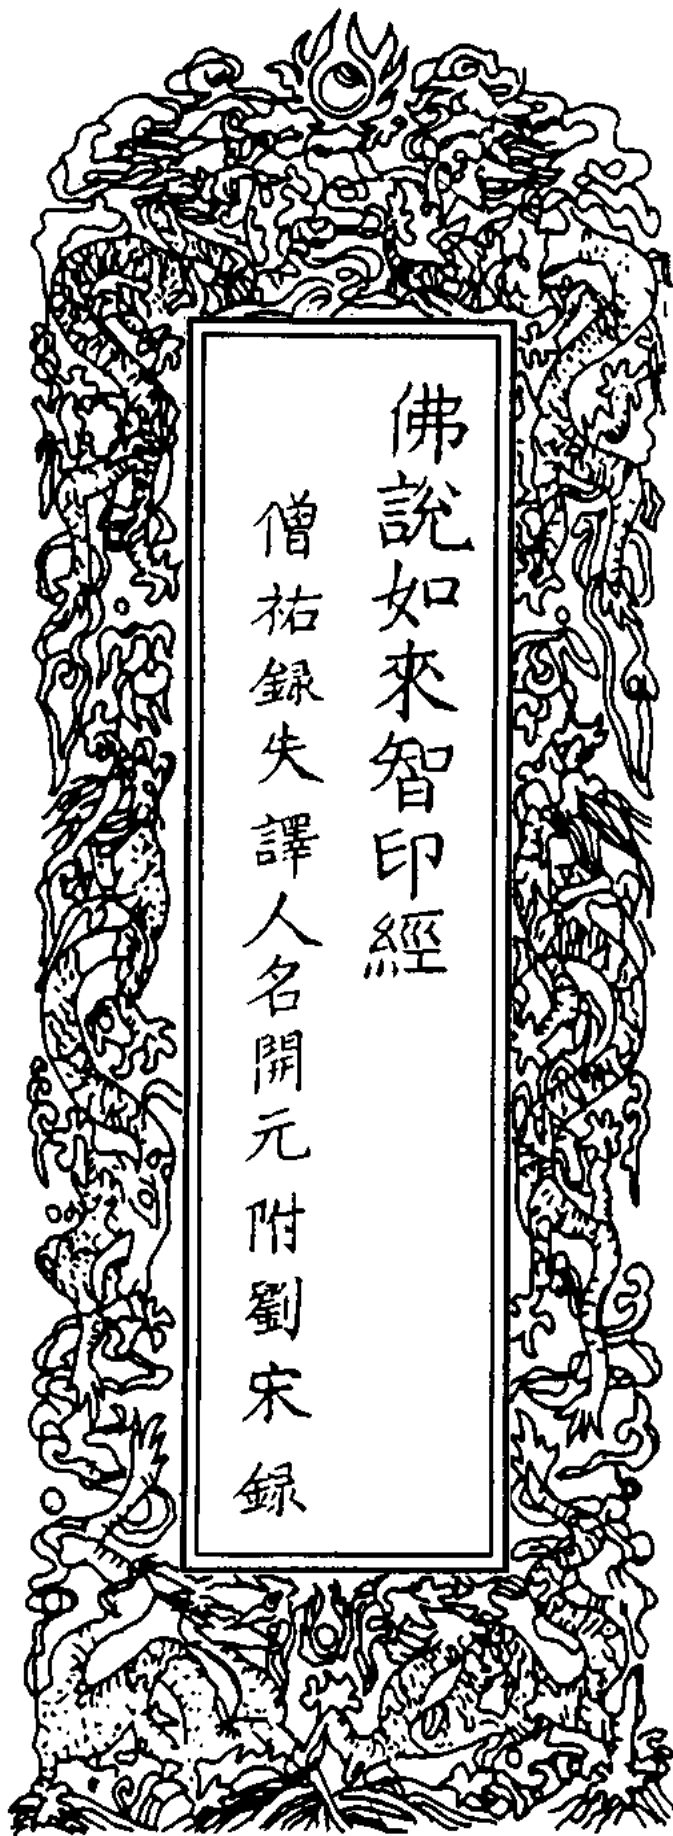 佛說如來智印經
僧祐録失譯人名開元附劉宋録